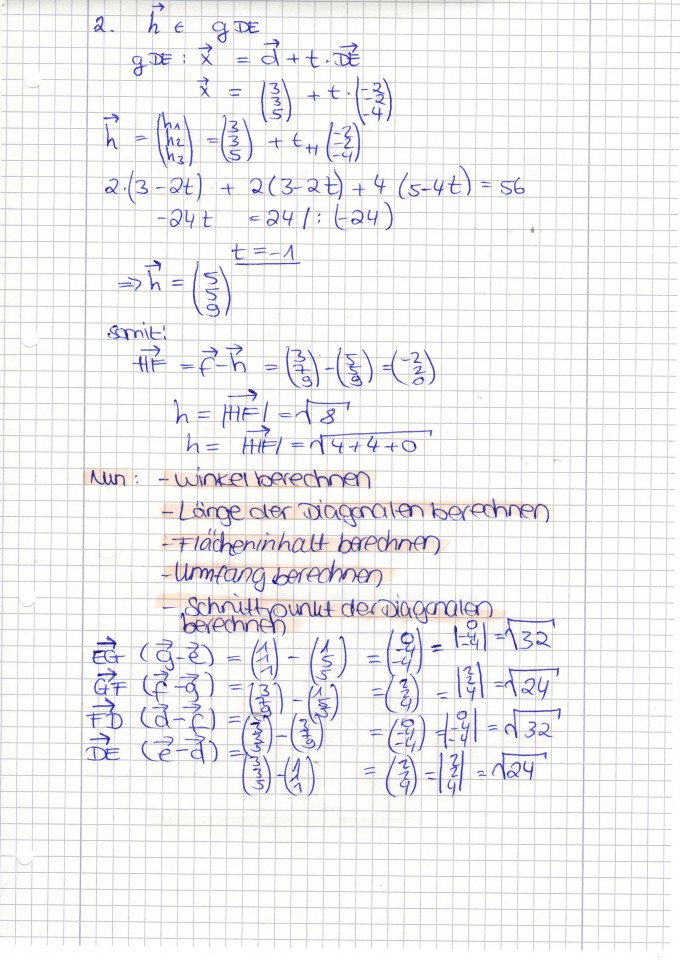 2. h⃗ ∈ g DE
g DE : x⃗ = d⃗ + t · DE⃗
x⃗ = (3 3 5) + t · (-2 -2 -4)
h⃗ = (h1 h2 h3) = (3 3 5) + tH (-2 -2 -4)
2·(3-2t) + 2(3-2t) + 4 (5-4t) = 56
-24t = 24 / : (-24)
t = -1
=> h⃗ = (5 5 9)
somit:
HF⃗ = f⃗ - h⃗ = (3 7 9) - (5 5 9) = (-2 2 0)
h = |HF⃗| = √8
h = |HF⃗| = √4+4+0
Nun : - Winkel berechnen
- Länge der Diagonalen berechnen
- Flächeninhalt berechnen
- Umfang berechnen
- Schnittpunkt der Diagonalen
berechnen
EG⃗ (g⃗ - e⃗) = (1 1 1) - (1 5 5) = (0 -4 -4) = |0 -4 -4| = √32
GF⃗ (f⃗ - g⃗) = (3 7 9) - (1 5 5) = (2 2 4) = |2 2 4| = √24
FD⃗ (d⃗ - f⃗) = (3 3 5) - (3 7 9) = (0 -4 -4) = |0 -4 -4| = √32
DE⃗ (e⃗ - d⃗) = (3 3 5) - (1 1 1) = (2 2 4) = |2 2 4| = √24